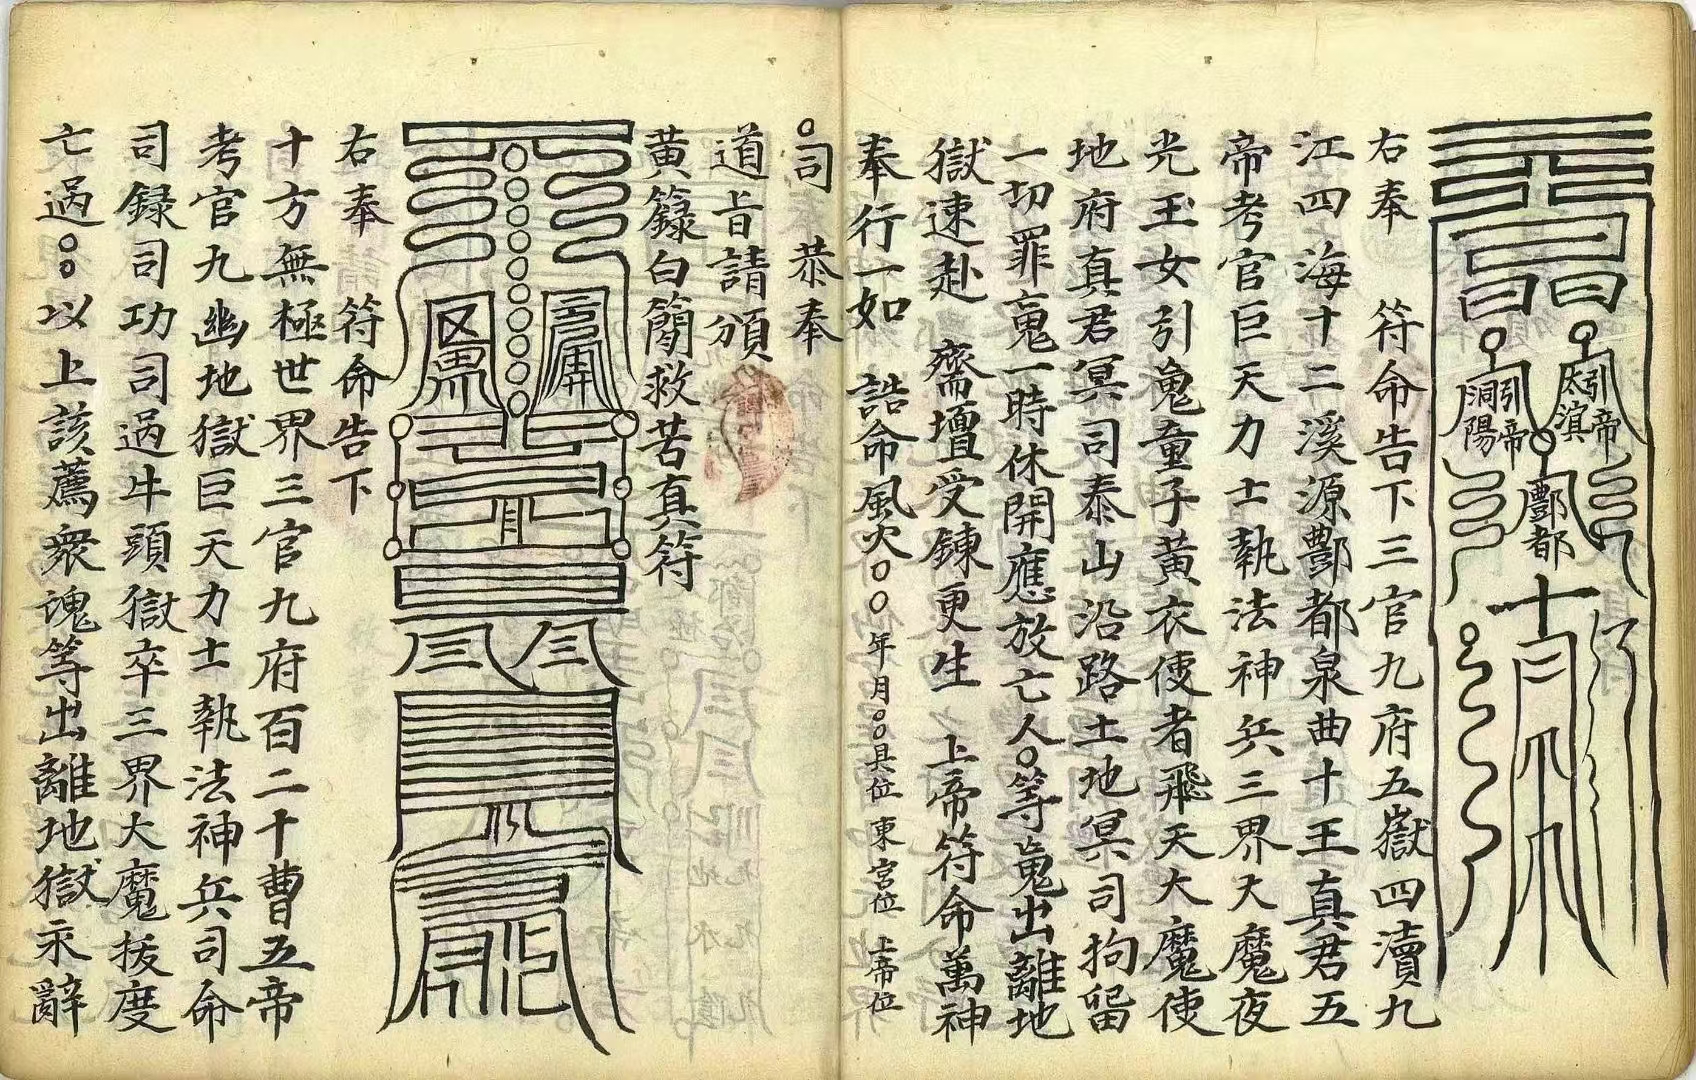 引帝太溟
引帝洞陽
酆都
右奉　符命告下三官九府五嶽四瀆九
江四海十二溪源酆都泉曲十王真君五
帝考官巨天力士執法神兵三界大魔夜
光玉女引䰟童子黃衣使者飛天大魔使
地府真君冥司泰山沿路土地冥司拘留
一切罪䰟一時休開應放亡人○等䰟出離地
獄速赴　齋壇受鍊更生　上帝符命萬神
奉行一如　誥命風火○○年月○○具位　東宮位　上帝位
○司　恭奉
道旨請頒
黃籙白簡救苦真符
右奉　符命告下
十方無極世界三官九府百二十曹五帝
考官九幽地獄巨天力士執法神兵司命
司録司功司過牛頭獄卒三界大魔拔度
亡過○○以上該薦衆魂等出離地獄永辭